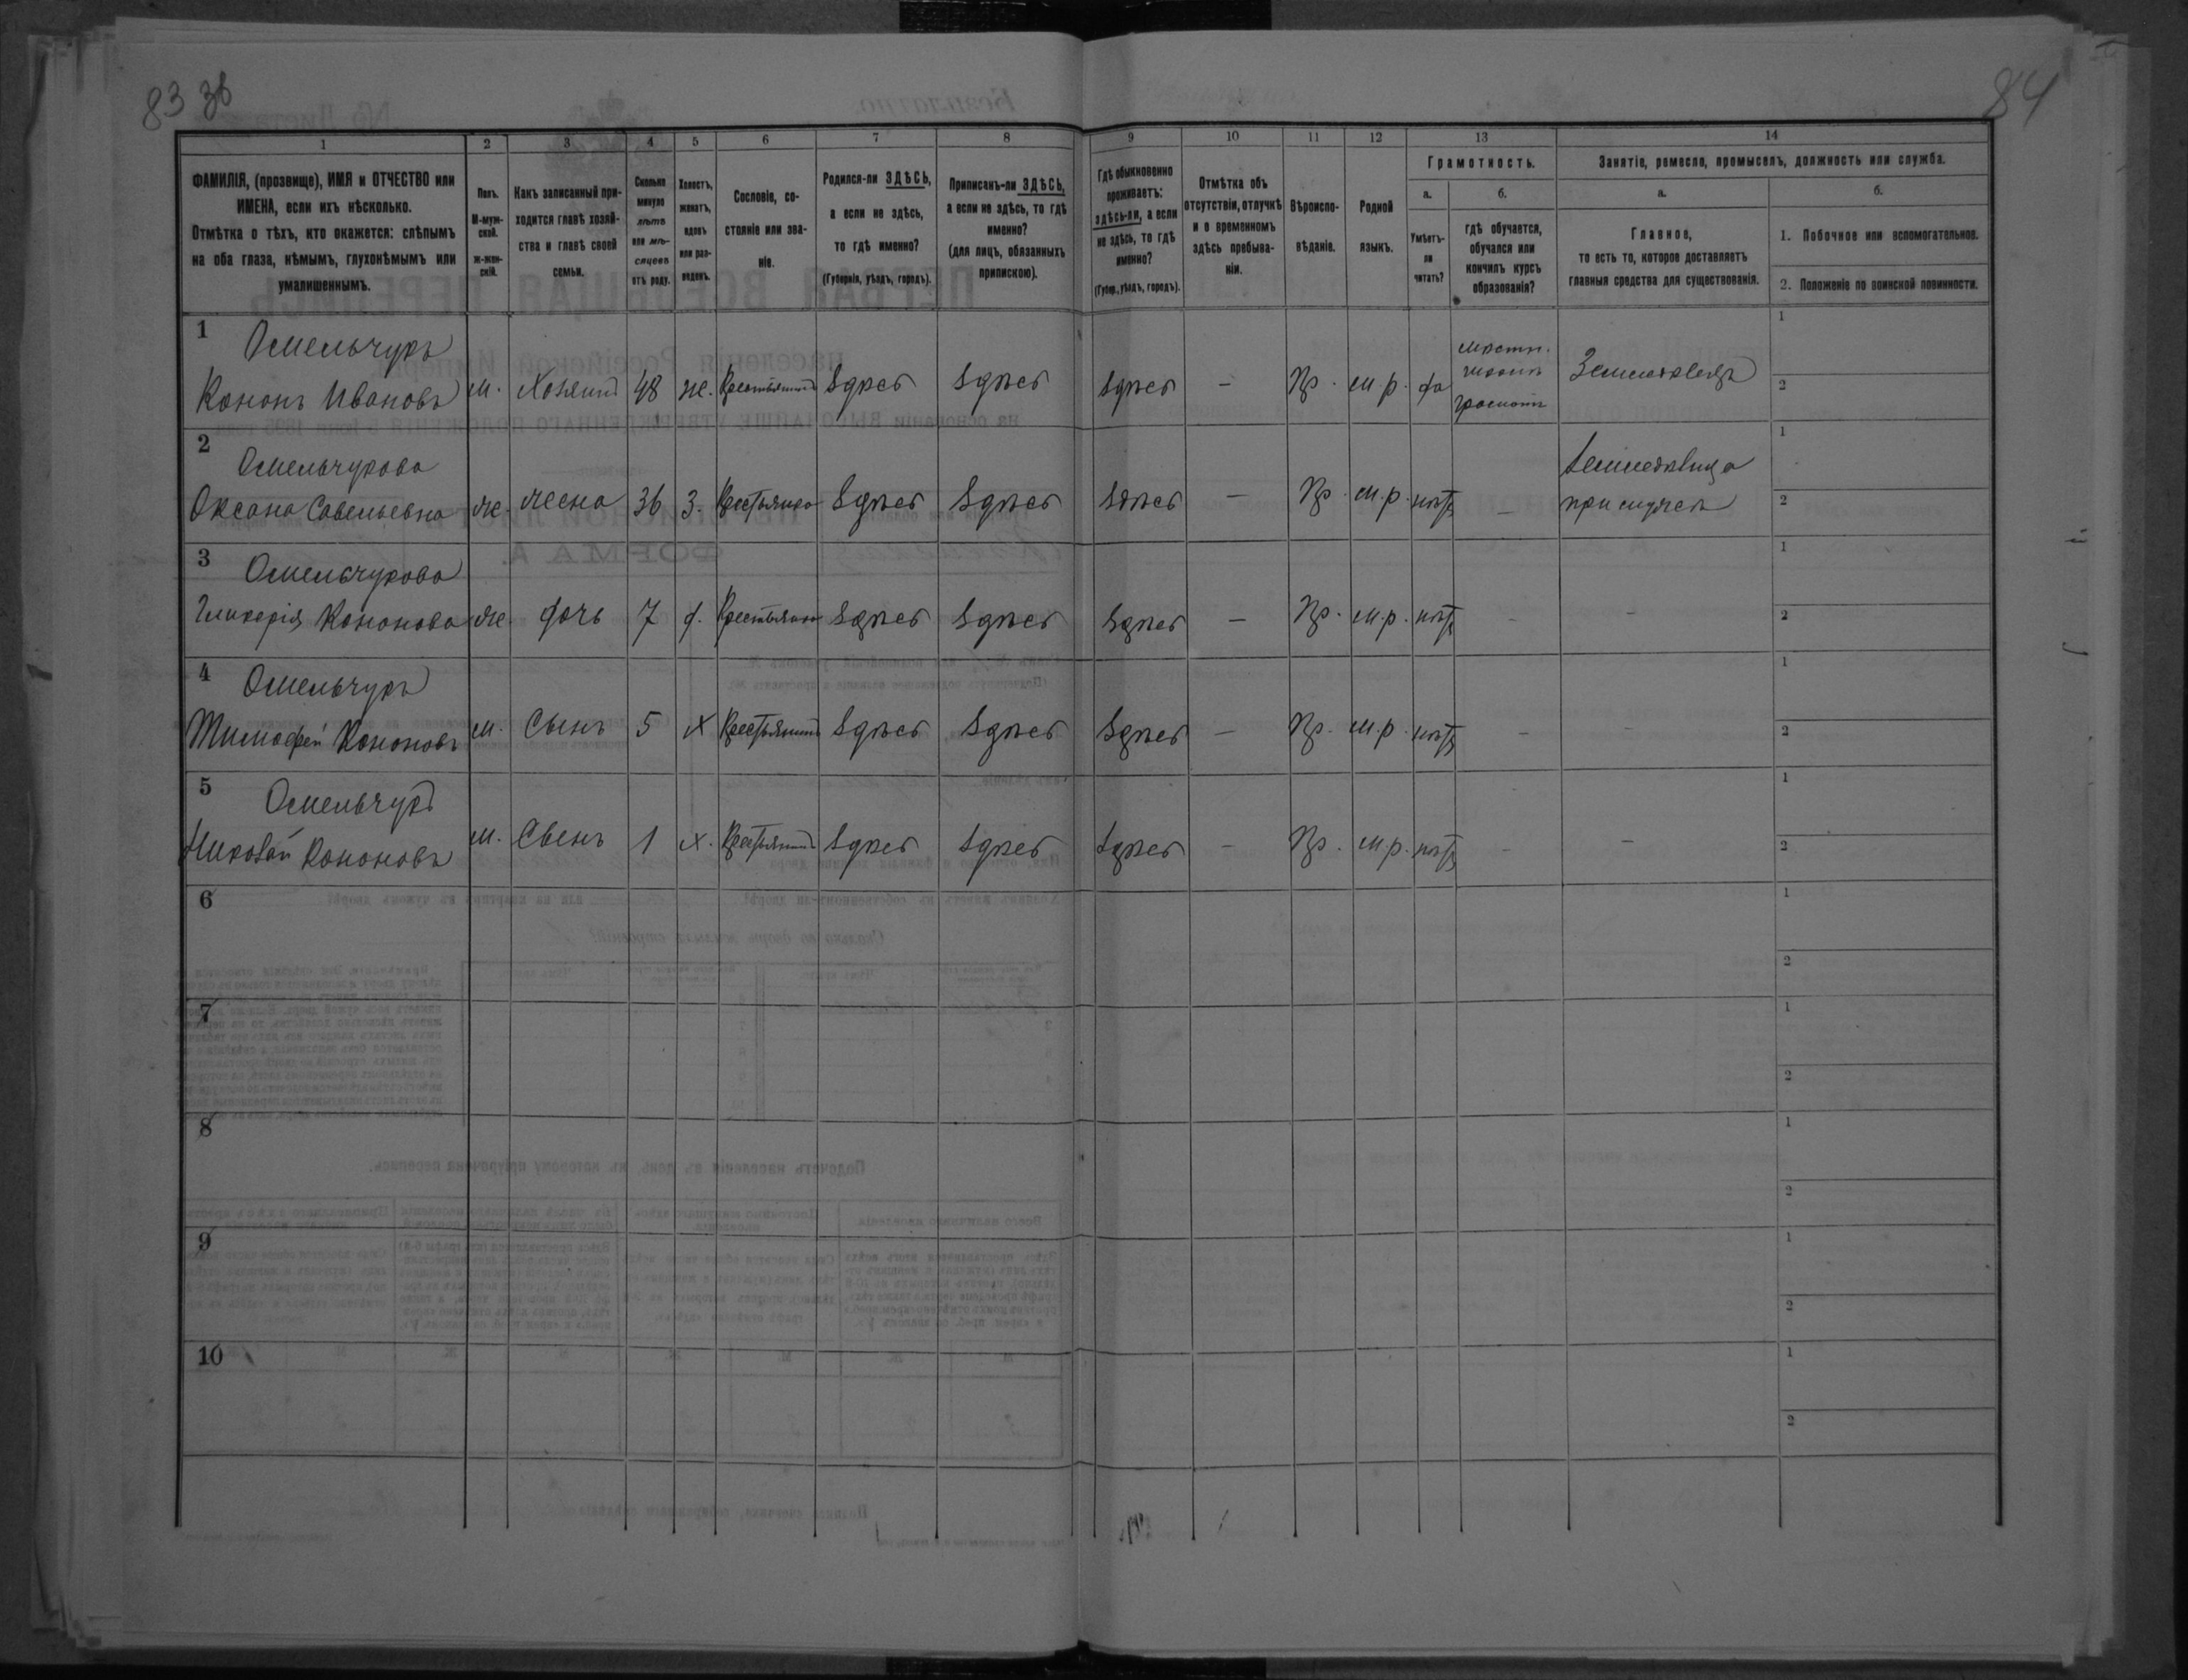 83 зв
84
1
2
3
4
5
6
7
8
9
10
11
12
13
14
ФАМИЛІЯ, (прозвище), ИМЯ и ОТЧЕСТВО или
ИМЕНА, если ихъ нѣсколько.
Отмѣтка о тѣхъ, кто окажется: слѣпымъ
на оба глаза, нѣмымъ, глухонѣмымъ или
умалишеннымъ.
Полъ.
М-муж-
ской.
Ж-жен-
скій.
Какъ записанный при-
ходится главѣ хозяй-
ства и главѣ своей
семьи.
Сколько
минуло
лѣтъ
или мѣ-
сяцевъ
отъ роду.
Холостъ,
женатъ,
вдовъ
или раз-
веденъ.
Сословіе, со-
стояніе или зва-
ніе.
Родился-ли ЗДѢСЬ,
а если не здѣсь,
то гдѣ именно?
(Губернія, уѣздъ, городъ).
Приписанъ-ли ЗДѢСЬ,
а если не здѣсь, то гдѣ
именно?
(для лицъ, обязанныхъ
припискою).
Гдѣ обыкновенно
проживаетъ:
здѣсь-ли, а если
не здѣсь, то гдѣ
именно?
(Губер., уѣздъ, городъ).
Отмѣтка объ
отсутствіи, отлучкѣ
и о временномъ
здѣсь пребыва-
ніи.
Вѣроиспо-
вѣданіе.
Родной
языкъ.
Грамотность.
а.
Умѣетъ-
ли
читать?
б.
гдѣ обучается,
обучался или
кончилъ курсъ
образованія?
Занятіе, ремесло, промыселъ, должность или служба.
а.
Главное,
то есть то, которое доставляетъ
главныя средства для существованія.
б.
1. Побочное или вспомогательное.
2. Положеніе по воинской повинности.
1 Омельчукъ
Кононъ Ивановъ м. Хозяинъ 48 ж. Крестьянинъ Здѣсь Здѣсь Здѣсь — Пр. м.р. да грамотѣ Земледѣлецъ 1 2
2 Омельчукова
Оксана Савельевна ж. жена 36 З. Крестьянка Здѣсь Здѣсь Здѣсь — Пр. м.р. нѣтъ — Земледѣлица
при мужѣ 1 2
3 Омельчукова
Гликерія Кононова ж. дочь 7 д. Крестьянка Здѣсь Здѣсь Здѣсь — Пр. м.р. нѣтъ — — 1 2
4 Омельчукъ
Тимофей Кононовъ м. Сынъ 5 х Крестьянинъ Здѣсь Здѣсь Здѣсь — Пр. м.р. нѣтъ — — 1 2
5 Омельчукъ
Николай Кононовъ м. Сынъ 1 х. Крестьянинъ Здѣсь Здѣсь Здѣсь — Пр. м.р. нѣтъ — — 1 2
6 1 2
7 1 2
8 1 2
9 1 2
10 1 2